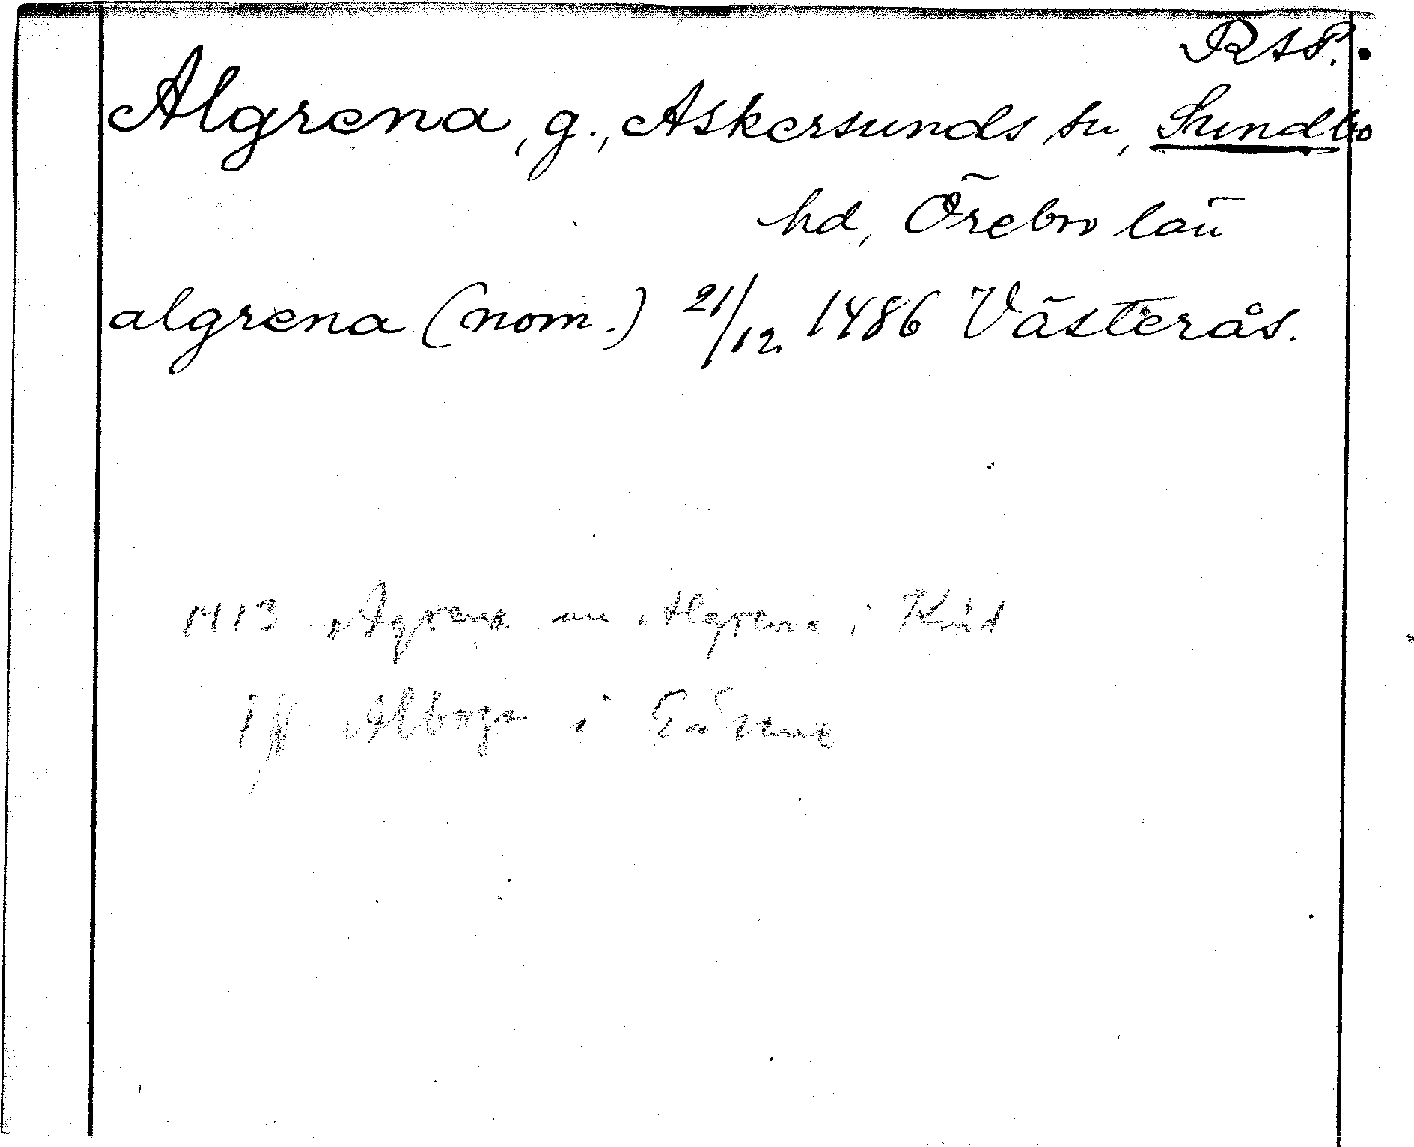 RAP.
Algrena, g., Askersunds sn, Sundbo
hd, Örebro län
algrena (nom.) 21/12 1486 Västerås.
1413 Agrena Algrena i
Alboga i